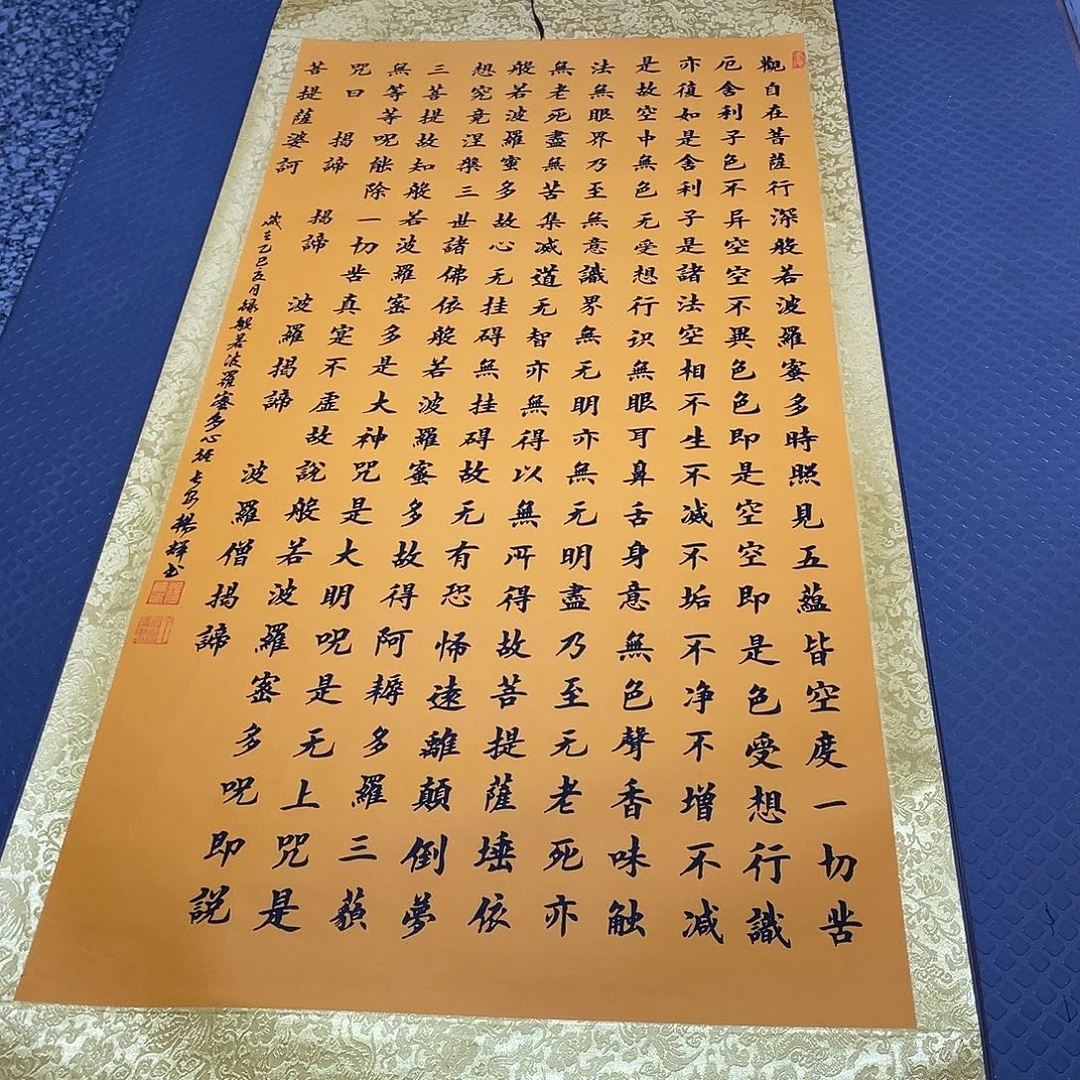 觀自在菩薩行深般若波羅蜜多時照見五蘊皆空度一切苦
厄舍利子色不异空空不異色色即是空空即是色受想行識
亦復如是舍利子是諸法空相不生不滅不垢不净不增不减
是故空中無色无受想行识無眼耳鼻舌身意無色聲香味触
法無眼界乃至無意識界無无明亦無无明盡乃至无老死亦
無老死盡無苦集滅道无智亦無得以無所得故菩提薩埵依
般若波羅蜜多故心无挂碍無挂碍故无有恐怖遠離顛倒夢
想究竟涅槃三世諸佛依般若波羅蜜多故得阿耨多羅三藐
三菩提故知般若波羅密多是大神咒是大明呪是无上咒是
無等等呪能除一切苦真寔不虚故説般若波羅密多呪即説
咒曰 揭諦 揭諦 波羅揭諦 波羅僧揭諦
菩提薩婆訶
乙巳 月録般若波羅蜜多心経 楊輝书